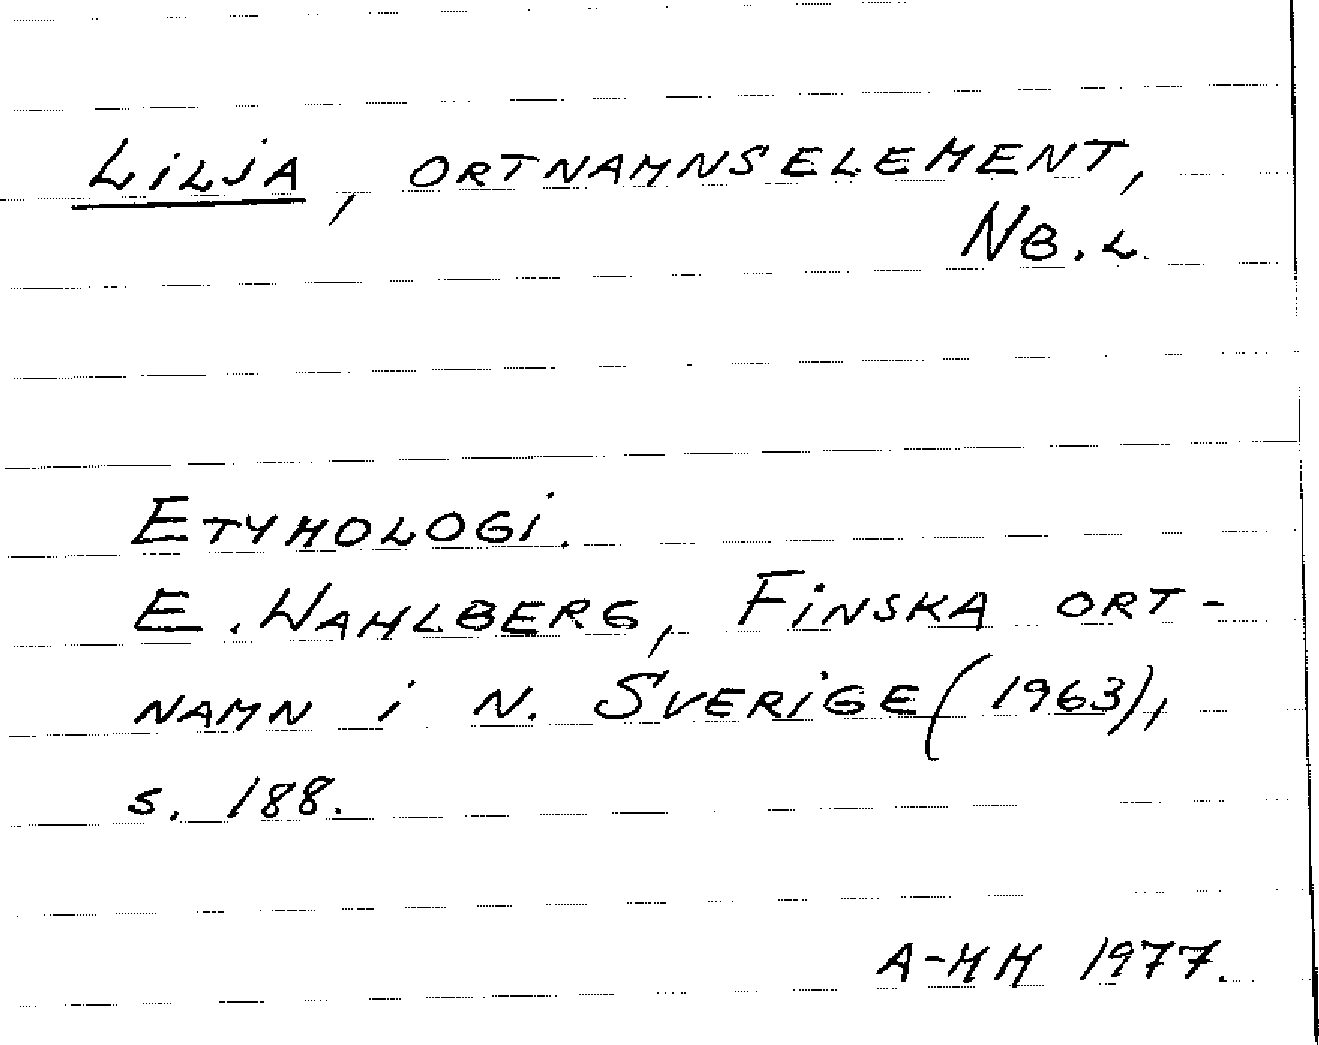 Lilja, ORTNAMNSELEMENT,
NB. L.
ETYMOLOGI.
E. WAHLBERG, FINSKA ORT-
NAMN I N. SVERIGE (1963),
s. 188.
A-MM 1977.